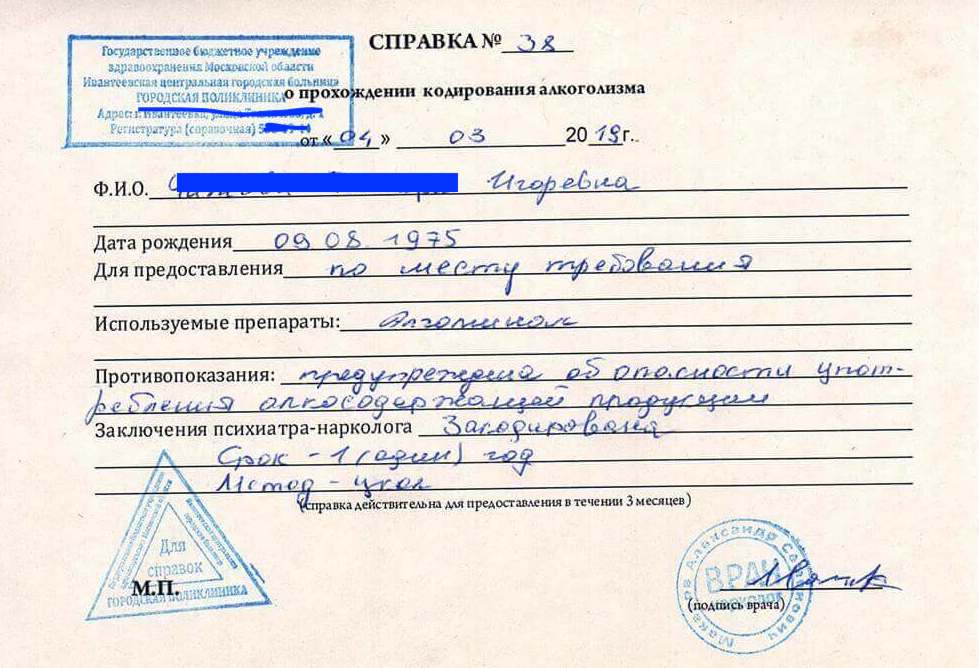 Государственное бюджетное учреждение
здравоохранения Московской области
Ивантеевская центральная городская больница
ГОРОДСКАЯ ПОЛИКЛИНИКА
Адрес: г. Ивантеевка,
Регистратура (справочная)
СПРАВКА № 38
о прохождении кодирования алкоголизма
от « 04 » 03 2019г.
Ф.И.О. Игоревна
Дата рождения 09 08. 1975
Для предоставления по месту требования
Используемые препараты: Алгоминал
Противопоказания: предупреждена об опасности упот-
ребления алкосодержащей продукции
Заключения психиатра-нарколога Закодирована
Срок - 1 (один) год
Метод - укол
(справка действительна для предоставления в течении 3 месяцев)
Для
справок
ГОРОДСКАЯ ПОЛИКЛИНИКА
М.П.
Макаров Александр
ВРАЧ
(подпись врача)